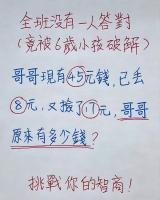 全班没有一人答對
（竟被6歲小孩破解）
哥哥現有45元錢,已丟
8元,又撿了7元,哥哥
原來有多少錢?
挑戰你的智商!